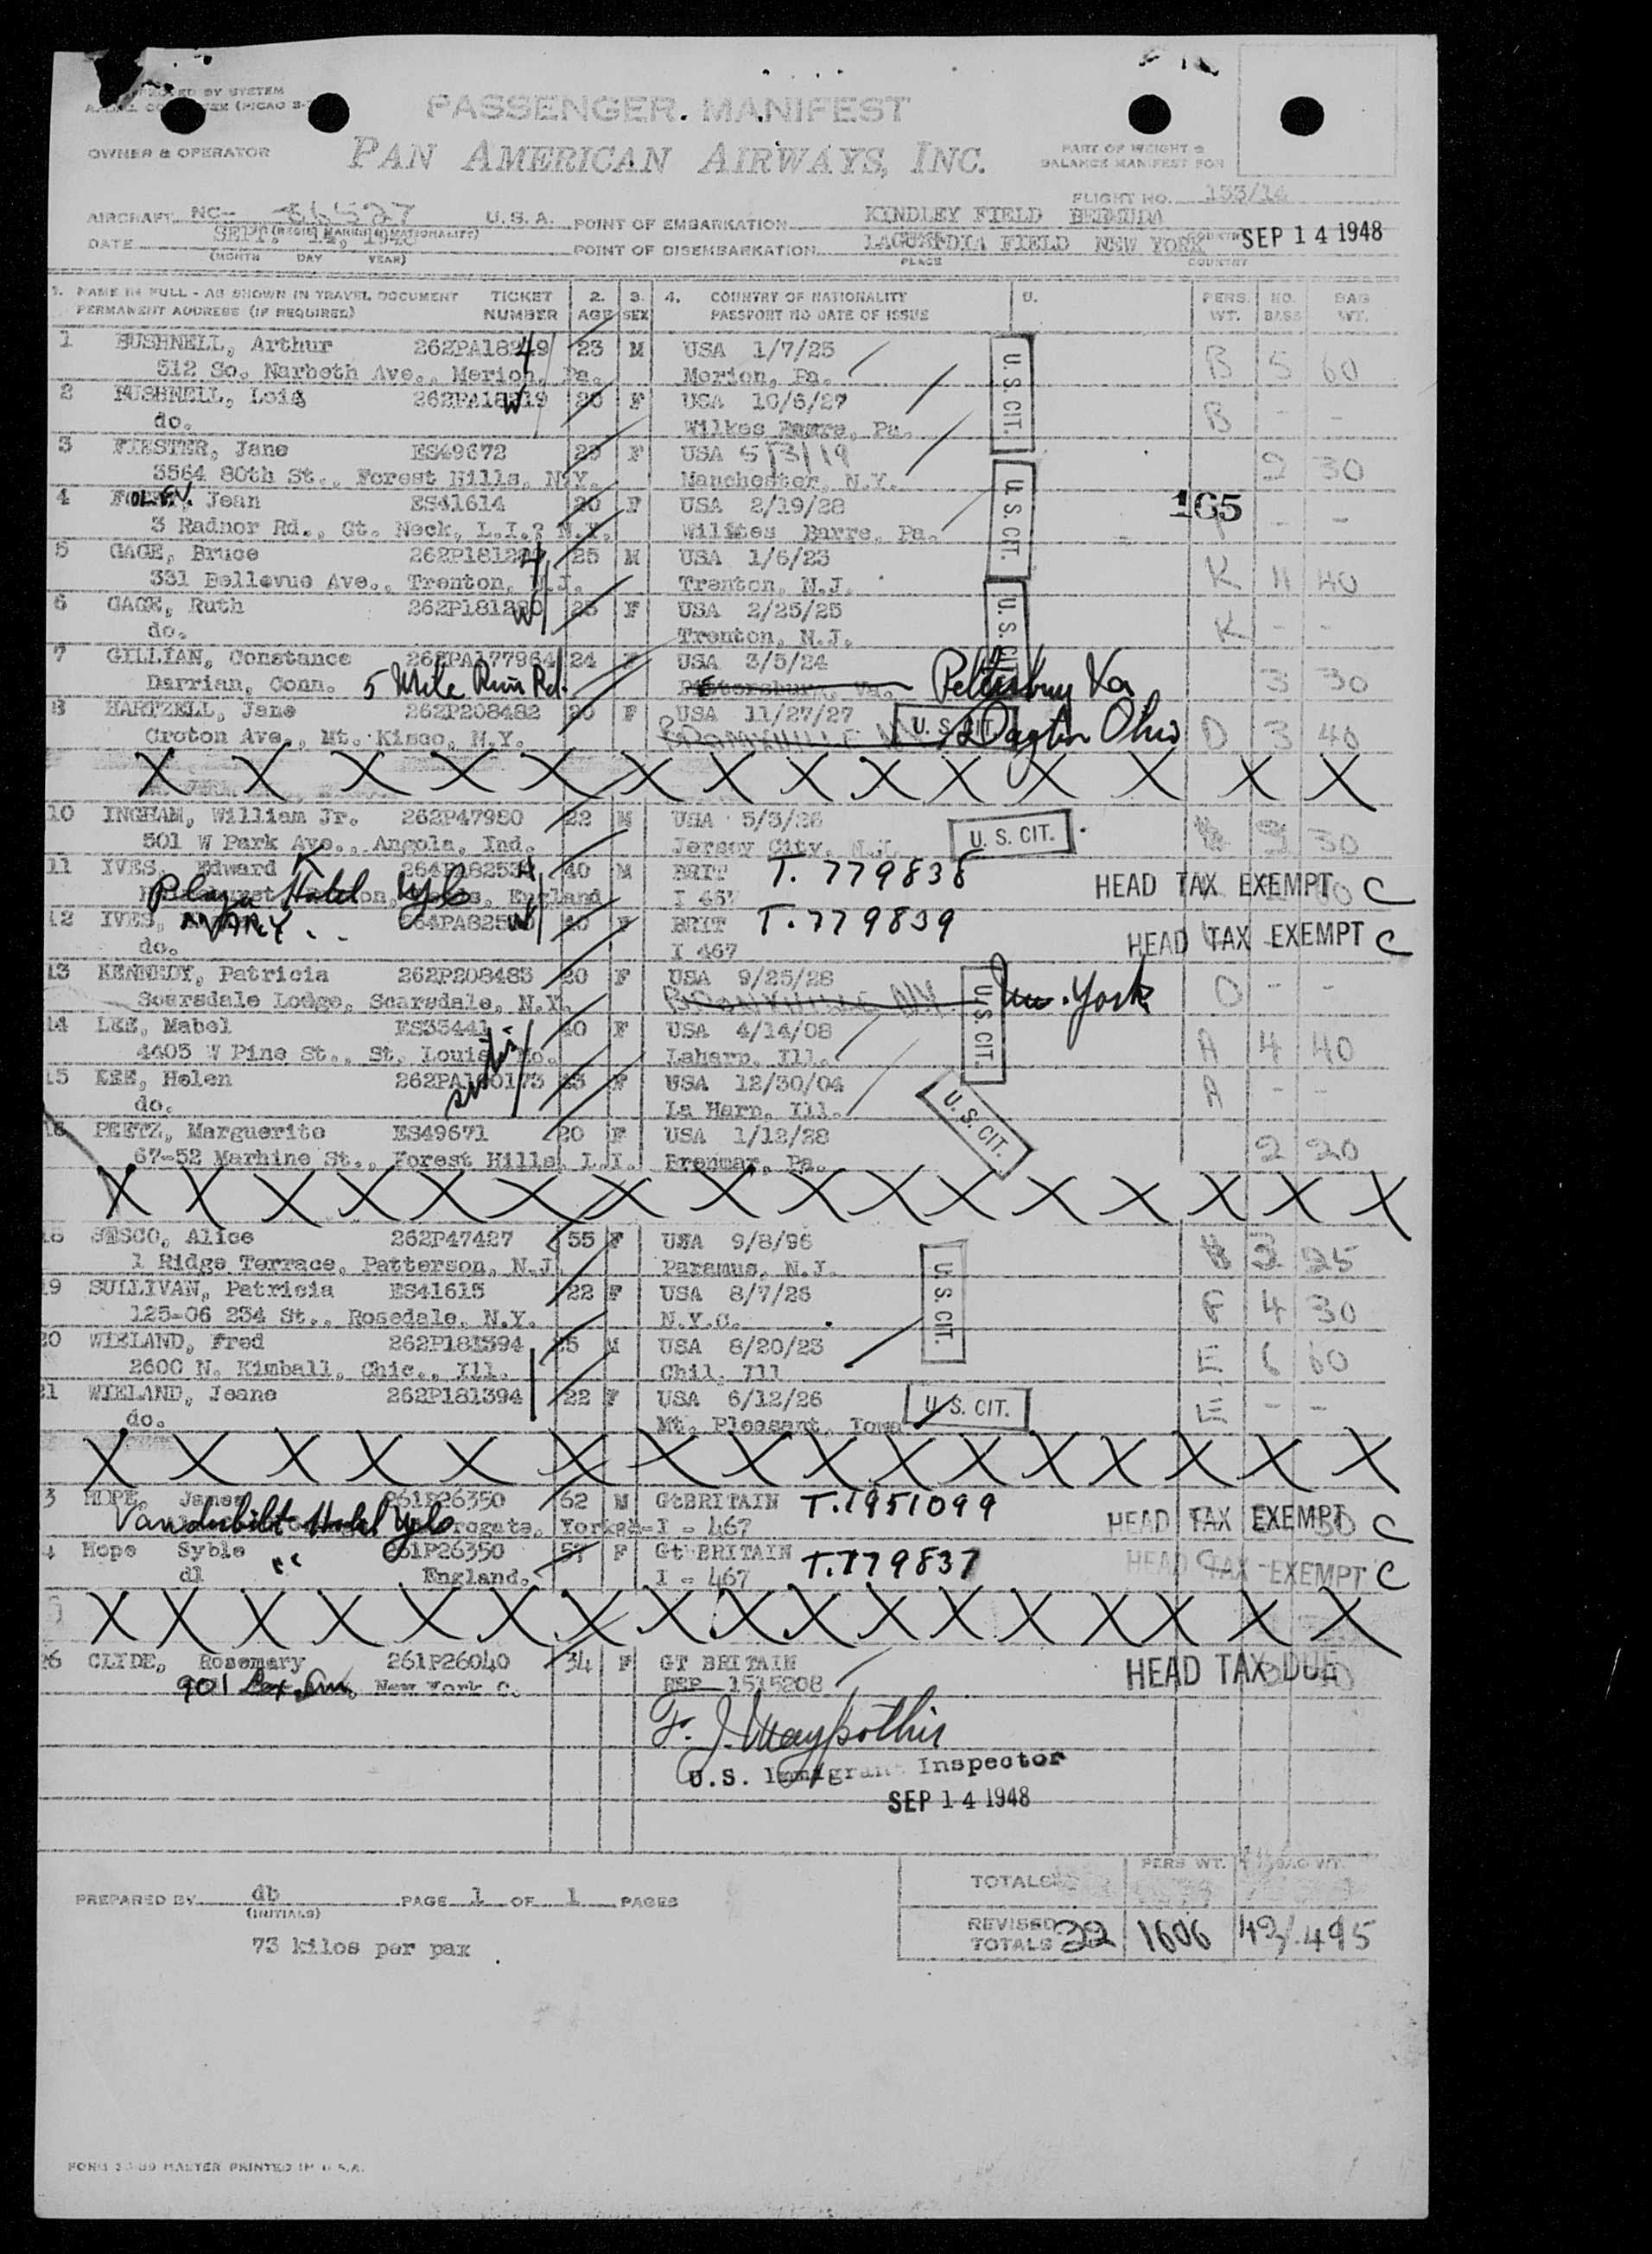 PASSENGER MANIFEST
OWNER & OPERATOR PAN AMERICAN AIRWAYS, INC. PART OF WEIGHT &
BALANCE MANIFEST FOR
FLIGHT NO. 153/14
AIRCRAFT NC- U.S.A. POINT OF EMBARKATION KINDLEY FIELD BERMUDA
DATE SEPT. POINT OF DISEMBARKATION LAGUARDIA FIELD NEW YORK SEP 14 1948
(MONTH DAY YEAR) PLACE COUNTRY
1. NAME IN FULL - AS SHOWN IN TRAVEL DOCUMENT TICKET 2. 3. 4. COUNTRY OF NATIONALITY U. PERS. NO. BAG
PERMANENT ADDRESS (IF REQUIRED) NUMBER AGE SEX PASSPORT NO DATE OF ISSUE WT. BAGS WT.
1 BUSHNELL, Arthur 23 M USA 1/7/25 U.S. CIT. B 5 60
512 So. Narbeth Ave., Merion, Pa. Merion, Pa.
2 BUSHNELL, Lois 20 F USA 10/6/27 B - -
do. Wilkes Barre, Pa.
3 FIESTER, Jane ES49672 F USA 5/3/19 2 30
3564 80th St., Forest Hills, N.Y. Manchester, N.Y.
4 FOLEY, Jean ES41614 20 F USA 2/19/28 U.S. CIT. 165 - -
3 Radnor Rd., Gt. Neck, L.I., N.Y. Wilkes Barre, Pa.
5 GAGE, Bruce 25 M USA 1/6/23 K 11 40
331 Bellevue Ave., Trenton, N.J. Trenton, N.J.
6 GAGE, Ruth F USA 2/25/25 U.S. CIT. K - -
do. Trenton, N.J.
7 GILLIAN, Constance 262PA177964 24 F USA 3/5/24 3 30
Darrian, Conn. 5 Mile Run Rd. Va.
8 HARTZELL, Jane 262P208482 20 F USA 11/27/27 U.S. CIT. Dayton Ohio D 3 40
Croton Ave., Mt. Kisco, N.Y. BRONXVILLE NY
X X X X X X X X X X X X X X
10 INGHAM, William Jr. 262P47980 22 M USA 5/5/26 U.S. CIT. 30
501 W Park Ave., Angola, Ind. Jersey City, N.J.
11 IVES, Edward K 40 M BRIT T. 779838 HEAD TAX EXEMPT C
Plaza Hotel England I 467
12 IVES, MARY 40 F BRIT T. 779839 HEAD TAX EXEMPT C
do. I 467
13 KENNEDY, Patricia 262P208483 20 F USA 9/25/28 U.S. CIT. New York D - -
Scarsdale Lodge, Scarsdale, N.Y. BRONXVILLE NY
14 LEE, Mabel ES35441 40 F USA 4/14/08 A 4 40
4405 W Pine St., St. Louis, Mo. Laharp, Ill.
15 KEE, Helen F USA 12/30/04 A - -
do. sister La Harp, Ill.
16 PEETZ, Marguerite ES49671 20 F USA 1/12/28 U.S. CIT. 2 20
67-52 Marhine St., Forest Hills, L.I. Brenmar, Pa.
X X X X X X X X X X X X X X X X
18 SESCO, Alice 262P47427 55 F USA 9/8/96 25
1 Ridge Terrace, Patterson, N.J. Paramus, N.J.
19 SULLIVAN, Patricia ES41615 22 F USA 8/7/26 U.S. CIT. F 4 30
125-06 234 St., Rosedale, N.Y. N.Y.C.
20 WIELAND, Fred 262P181394 25 M USA 8/20/23 E 6 60
2600 N. Kimball, Chic., Ill. Chil, Ill
21 WIELAND, Jeane 262P181394 22 F USA 6/12/26 U.S. CIT. E - -
do. Mt. Pleasant, Iowa
X X X X X X X X X X X X X X X
3 HOPE, James 261P26350 62 M GtBRITAIN T.1951099 HEAD TAX EXEMPT C
Vanderbilt Hotel I - 467
4 Hope Syble 261P26350 57 F Gt BRITAIN T.779837 HEAD TAX EXEMPT C
dl England. I - 467
X X X X X X X X X X X X X X X X
26 CLYDE, Rosemary 261P26040 34 F GT BRITAIN HEAD TAX DUE
901 Lex. Ave. New York C. REP 1515208
U.S. Immigrant Inspector
SEP 14 1948
PERS WT. BAG WT.
TOTALS
PREPARED BY db PAGE 1 OF 1 PAGES
(INITIALS)
REVISED TOTALS 22 1606 43/495
73 kilos per pax
MASTER PRINTED IN U.S.A.